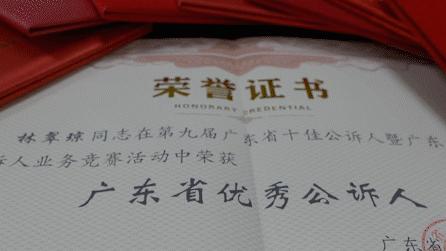 荣誉证书
HONORARY CREDENTIAL
林翠琼同志在第九届广东省十佳公诉人暨广东
诉人业务竞赛活动中荣获
广东省优秀公诉人
广东省